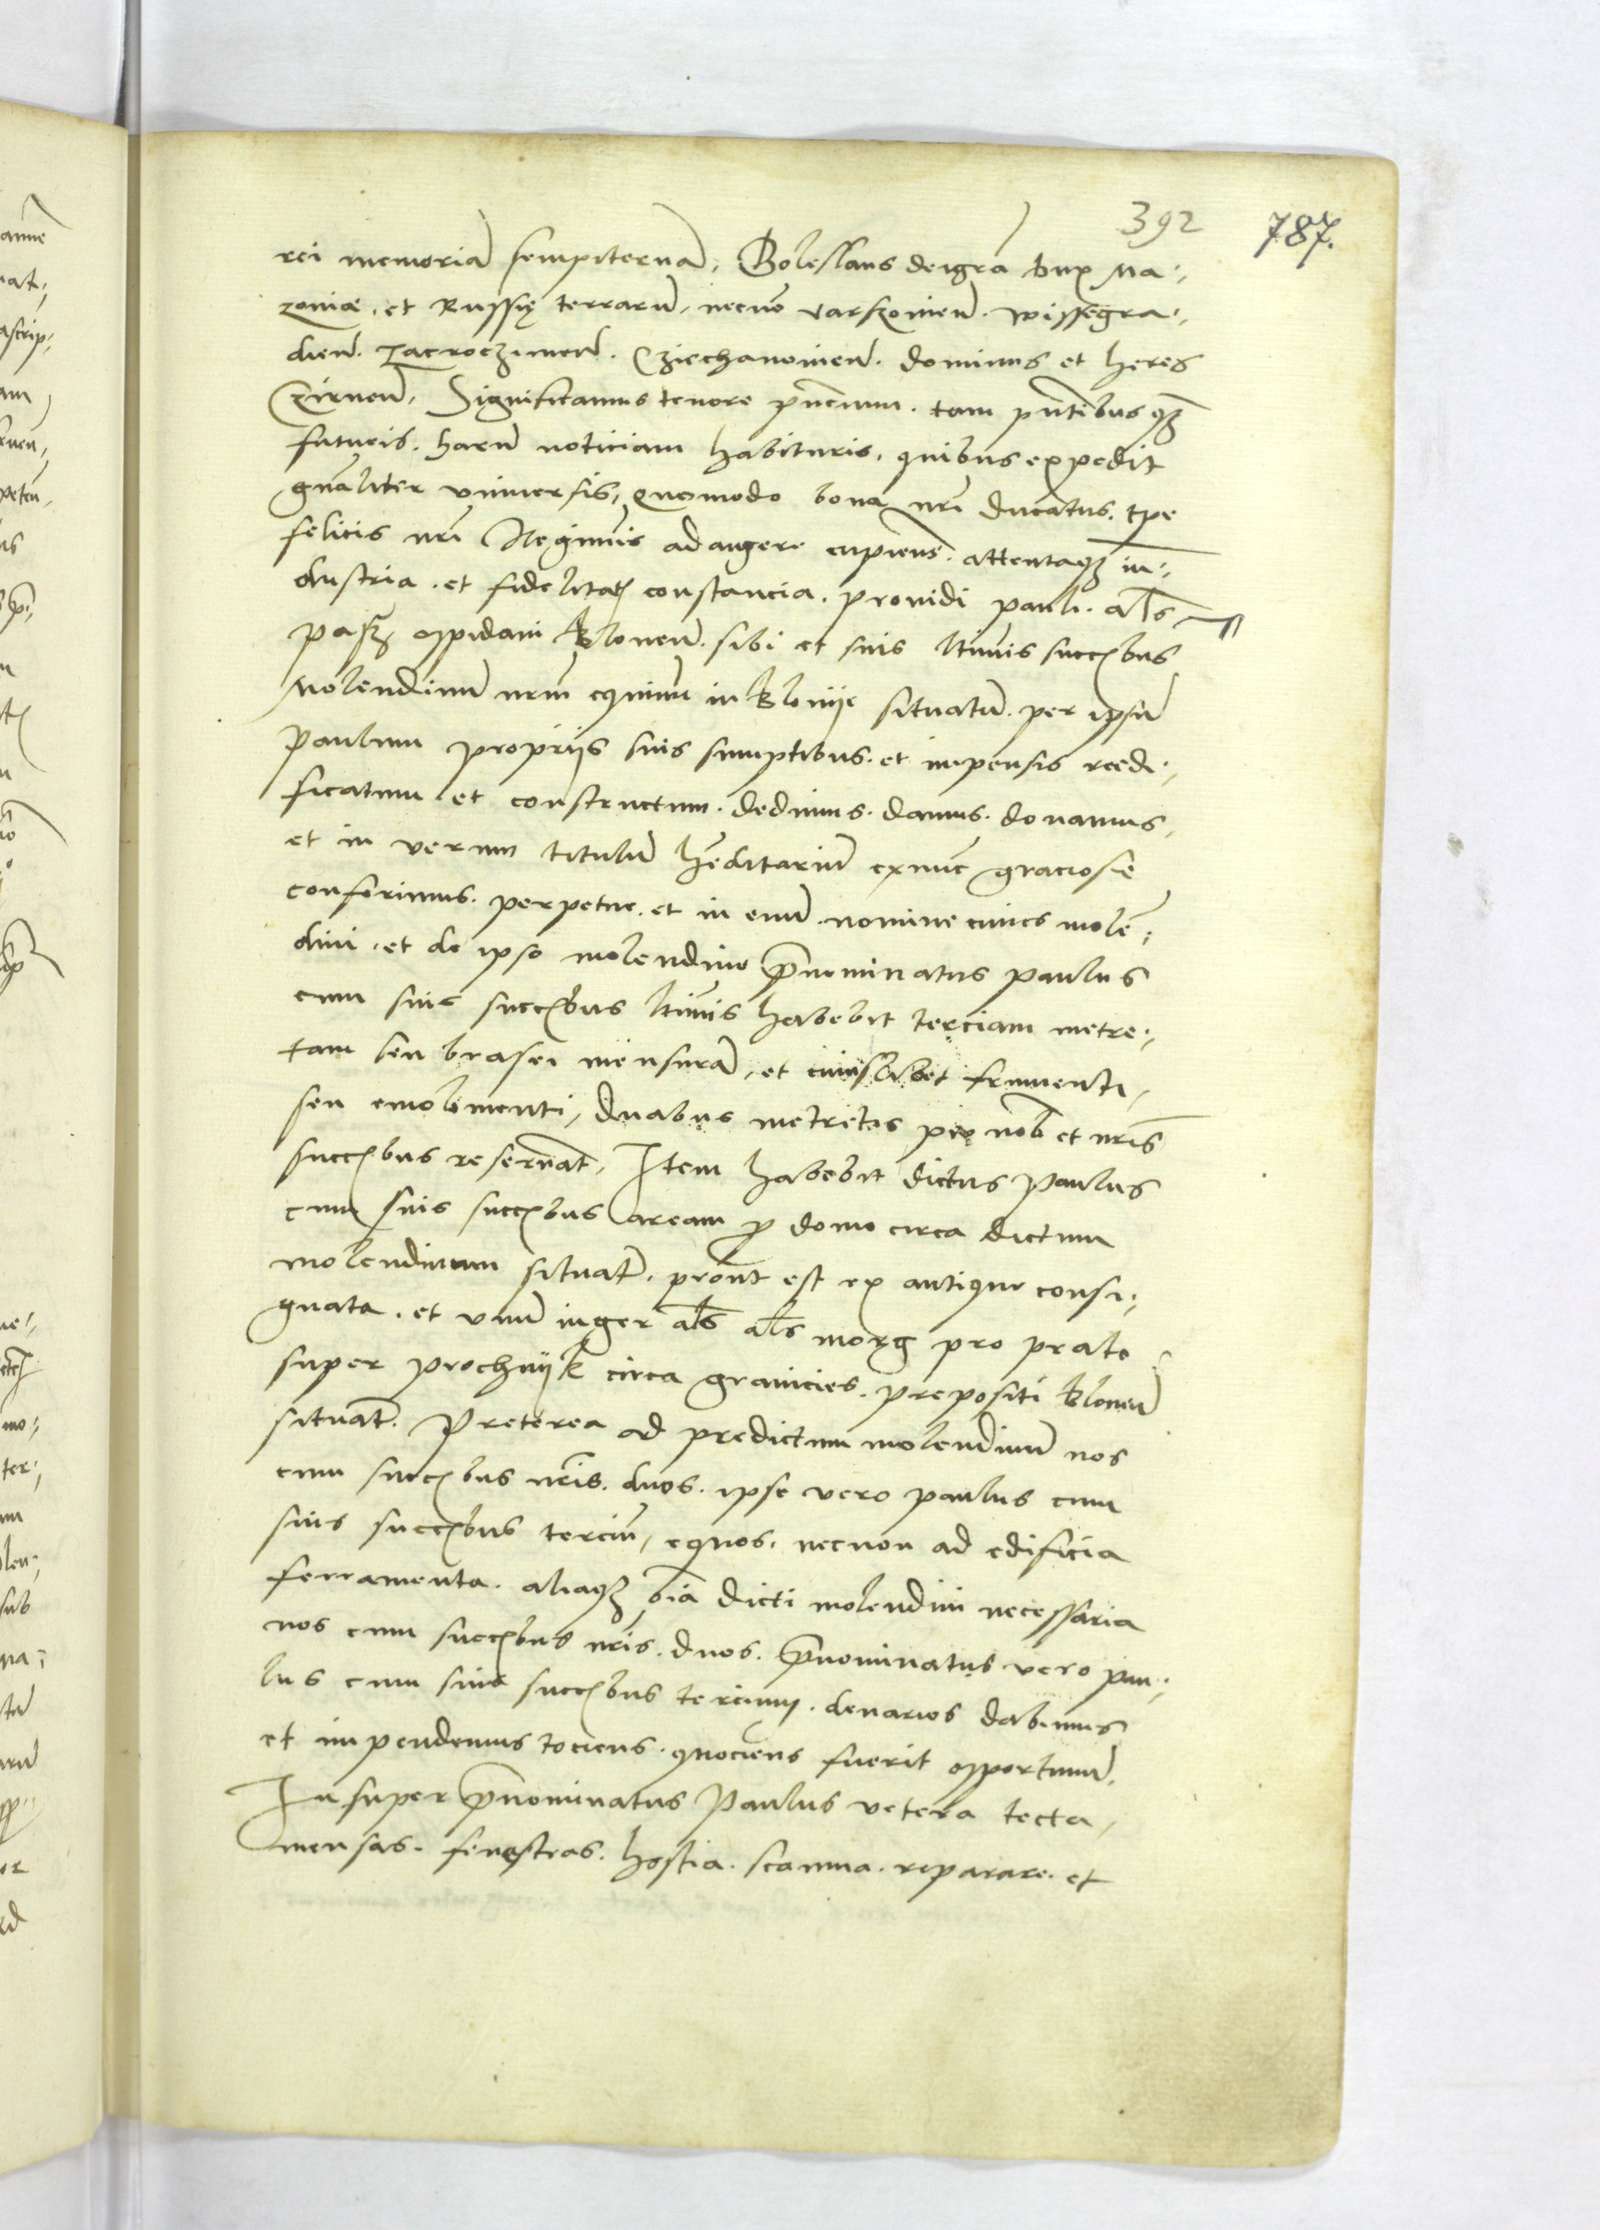 392 787.
rei memoriā sempiternā, Boleslaus dei grā dux Ma¬
zoviæ, et Russię terrarū, necnō Varszovieñ. Wissegra¬
dieñ. Zacroczimeñ. Cziechanovieñ. dominus et heres
Czirneñ, Significamus tenore pñcium. tam pñtibus qȝ
futuris. harū noticiam habituris, quibus expedit
gñaliter universis, Quomodo bona nr̄i Ducatus. tpe
felicis nr̄i Regiminis adaugere cupiens. attentaqȝ in¬
dustria. et fidelitatꝭ constancia. providi pauli. al̄s
oppidani Bloneñ. sibi et suis ltimis succꝭbus
Molendinū nrm̄ equinū in Blonije situatū. per ipsū
Paulum propriis suis sumptibus. et impensis reedi¬
ficatum et constructum. dedimus. damus. donamus,
et in verum titulū hēditariū exnunc graciose
conferimus. perpetue. et in evū. nomine cuius molē¬
dini, et de ipso molendino p̄nominatus Paulus
cum suis succꝭbus ltimis habebit terciam metre¬
tam seu brasei mensurā, et cuiuslibet frumenti,
seu emolimenti, duabus metretis pro nob̄ et nr̄is
succꝭbus reservat̄, Item habebit dictus Paulus
cum suis succꝭbus aream ꝓ domo circa dictum
molendinum situat̄. prout est ex antiquo consi¬
gnata. et unū iuger al̄s al̄s morg pro prato
super Prochnijk circa granicies. prepositi Bloneñ
situat̄. Preterea ad predictum molendinū nos
cum succꝭbus nr̄is. duos. ipse vero Paulus cum
suis succꝭbus terciū, equos. necnon ad edificia
ferramenta. aliaqȝ oīa dicti molendini necessaria
nos cum succꝭbus nr̄is. duos. p̄nominatus vero Pau¬
lus cum suis succꝭbus tercium. denarios dabimus
et impendemus tociens. quociens fuerit opportunū,
Insuper p̄nominatus Paulus vetera tecta,
mensas. fenestras. hostia. scamna. reparare. et